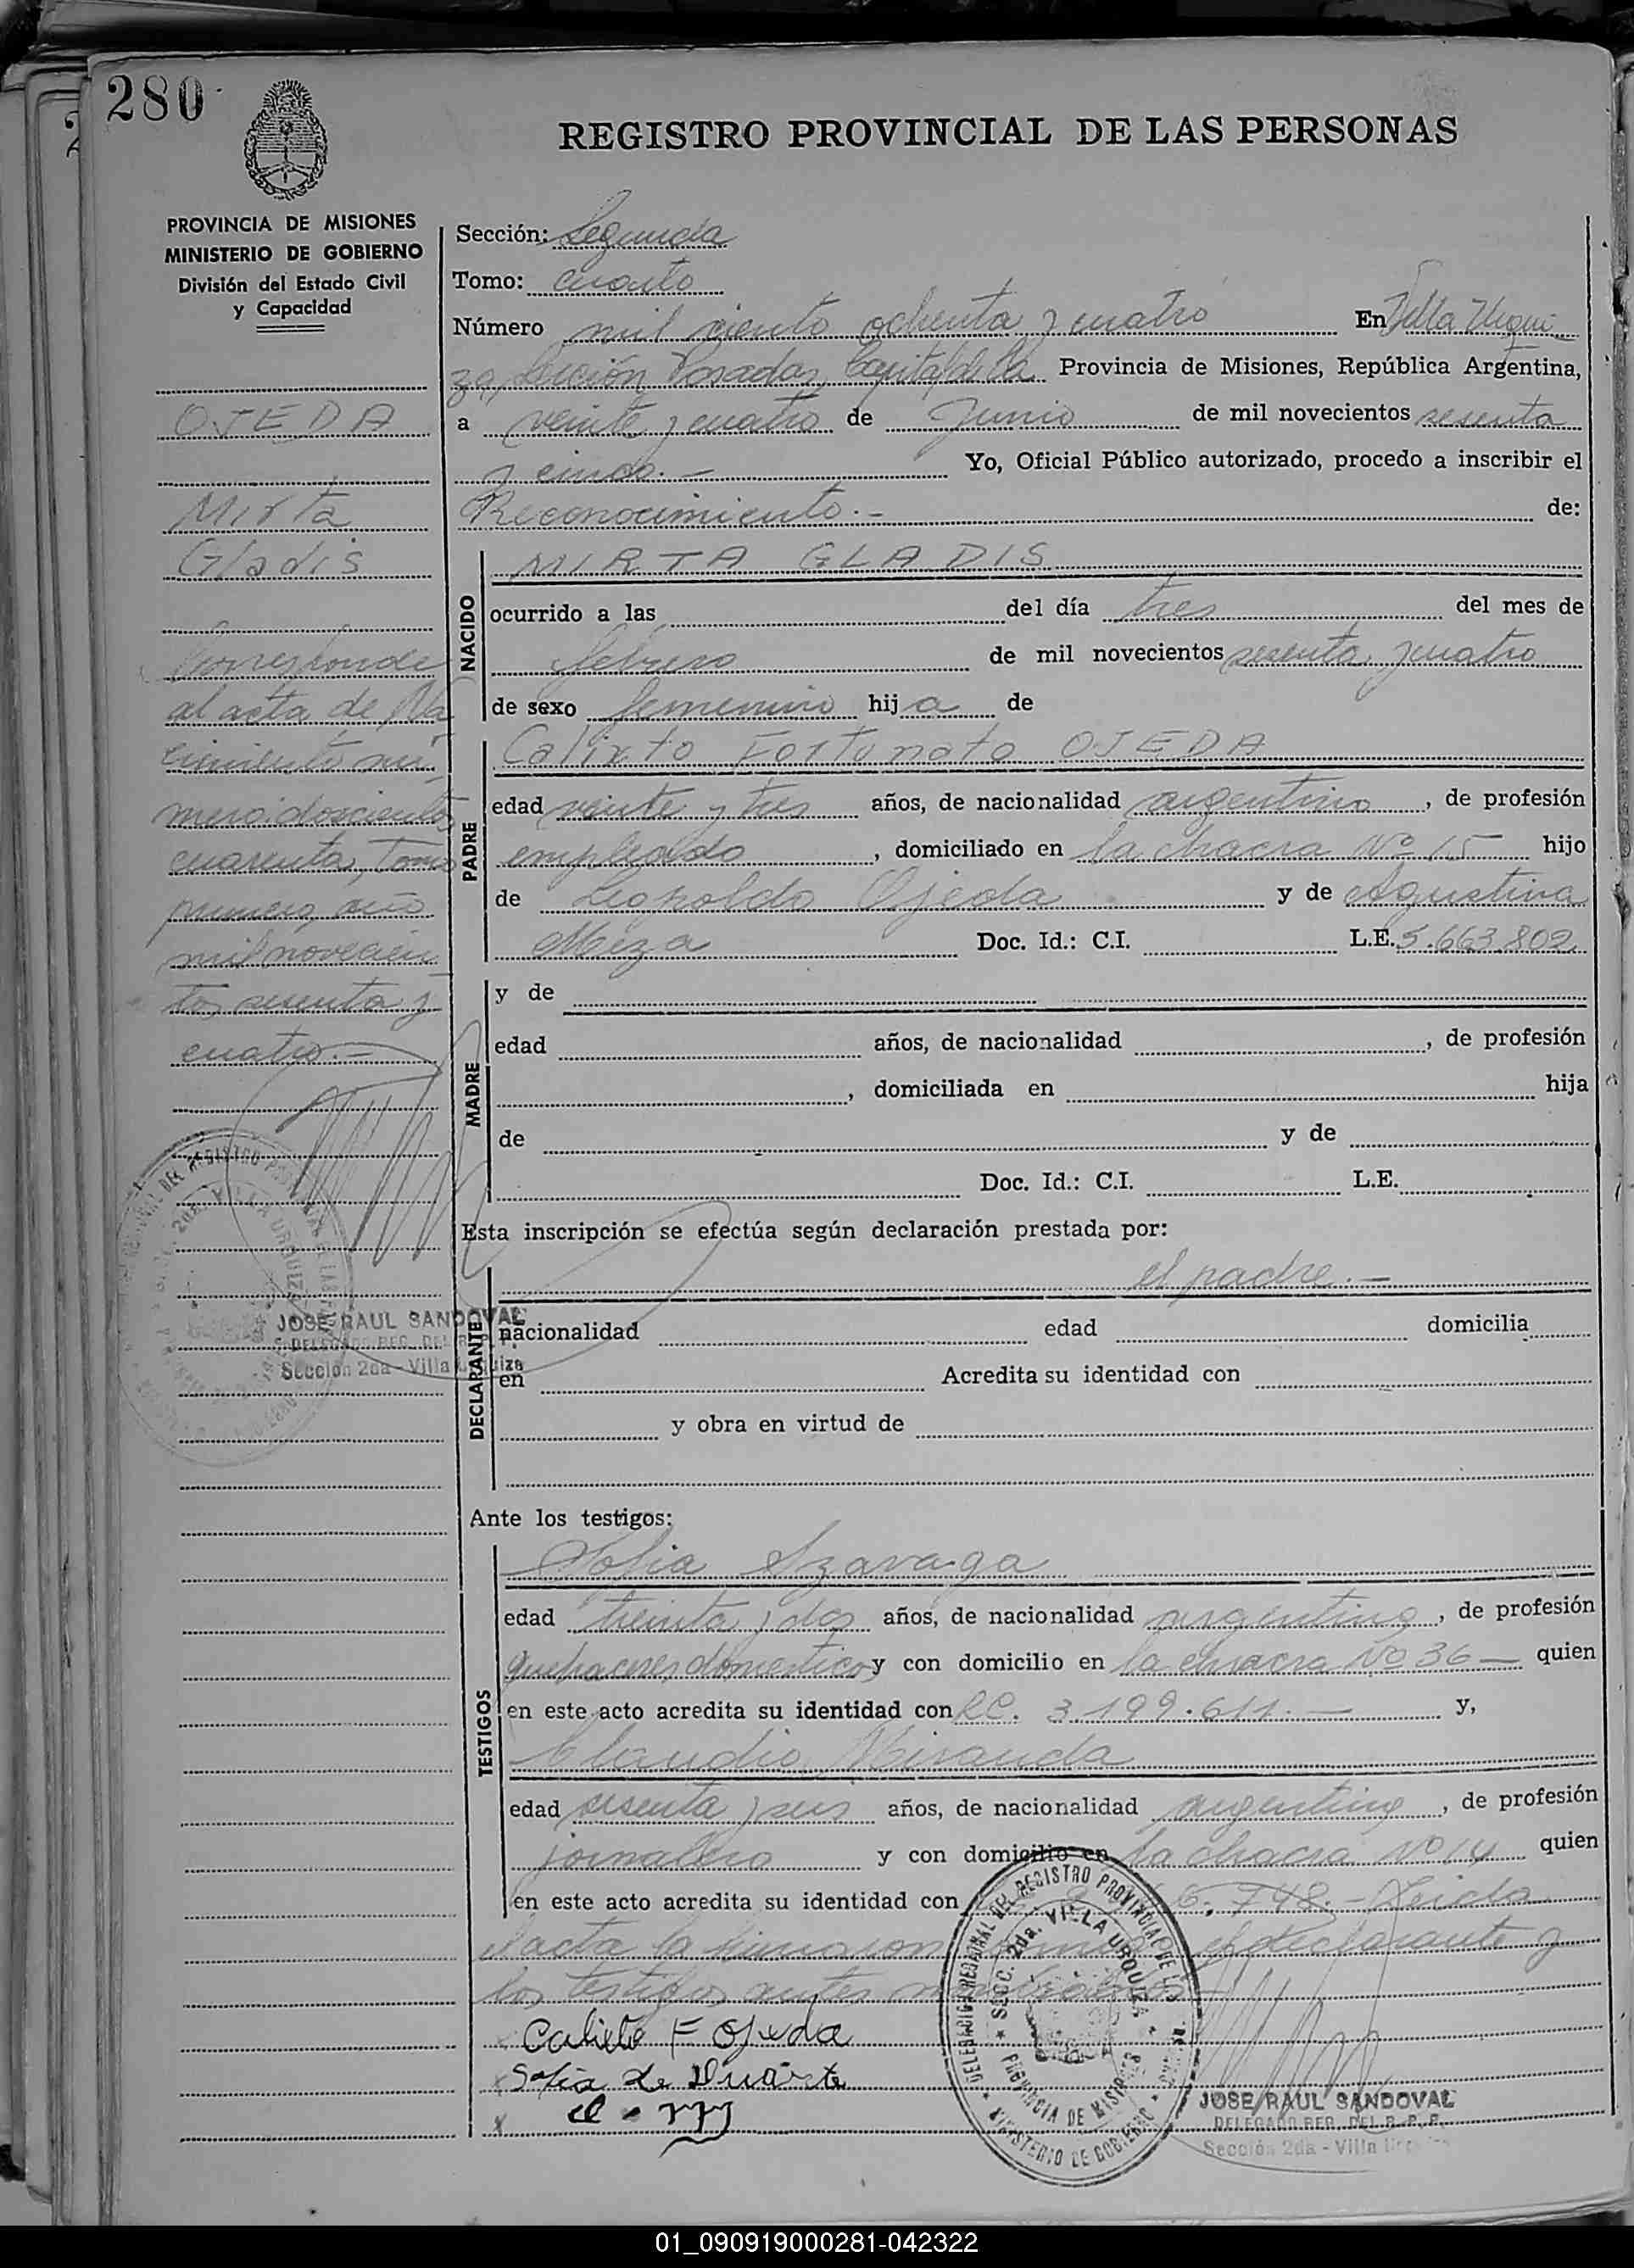 280
REGISTRO PROVINCIAL DE LAS PERSONAS
PROVINCIA DE MISIONES
MINISTERIO DE GOBIERNO
División del Estado Civil
y Capacidad
OJEDA
Mirta
Gladis
Corresponde
al acta de Na
cimiento nú
mero doscientos
cuarenta, Tomo
primero, año
mil novecien
tos sesenta y
cuatro.-
JOSE RAUL SANDOVAL
DELEGADO REG. DEL R. P. P.
Sección 2da - Villa Urquiza
Sección: Segunda
Tomo: cuarto
Número mil ciento ochenta y cuatro En Villa Urqui
za, Sección Posadas, Capital de la Provincia de Misiones, República Argentina,
a veinte y cuatro de Junio de mil novecientos sesenta
y cinco.- Yo, Oficial Público autorizado, procedo a inscribir el
Reconocimiento.- de:
NACIDO
MIRTA GLADIS
ocurrido a las del día tres del mes de
febrero de mil novecientos sesenta y cuatro
de sexo femenino hija de
PADRE
Calixto Fortunato OJEDA
edad veinte y tres años, de nacionalidad argentino, de profesión
empleado, domiciliado en la chacra Nº 15 hijo
de Leopoldo Ojeda y de Agustina
Meza Doc. Id.: C.I. L.E. 5.663.802
MADRE
y de
edad años, de nacionalidad , de profesión
, domiciliada en hija
de y de
Doc. Id.: C.I. L.E.
Esta inscripción se efectúa según declaración prestada por:
DECLARANTE
el padre.-
nacionalidad edad domicilia
en Acredita su identidad con
y obra en virtud de
Ante los testigos:
TESTIGOS
Sofia Szavaga
edad treinta y dos años, de nacionalidad argentina, de profesión
quehaceres domesticos y con domicilio en la chacra Nº 36 — quien
en este acto acredita su identidad con LC. 3.199.611.- y,
Claudio Miranda
edad sesenta y seis años, de nacionalidad argentino, de profesión
jornalero y con domicilio en la chacra Nº 14 quien
en este acto acredita su identidad con 748.- Leida
el acta la el declarante y
los testigos antes
x Calixto F Ojeda
x Sofia de Duarte
x
DELEGACION REGIONAL DEL REGISTRO PROVINCIAL DE LAS
SECC. 2da. VILLA URQUIZA
PROVINCIA DE MISIONES
MINISTERIO DE GOBIERNO
JOSE RAUL SANDOVAL
DELEGADO REG. DEL R. P. P.
Sección 2da - Villa
01_090919000281-042322